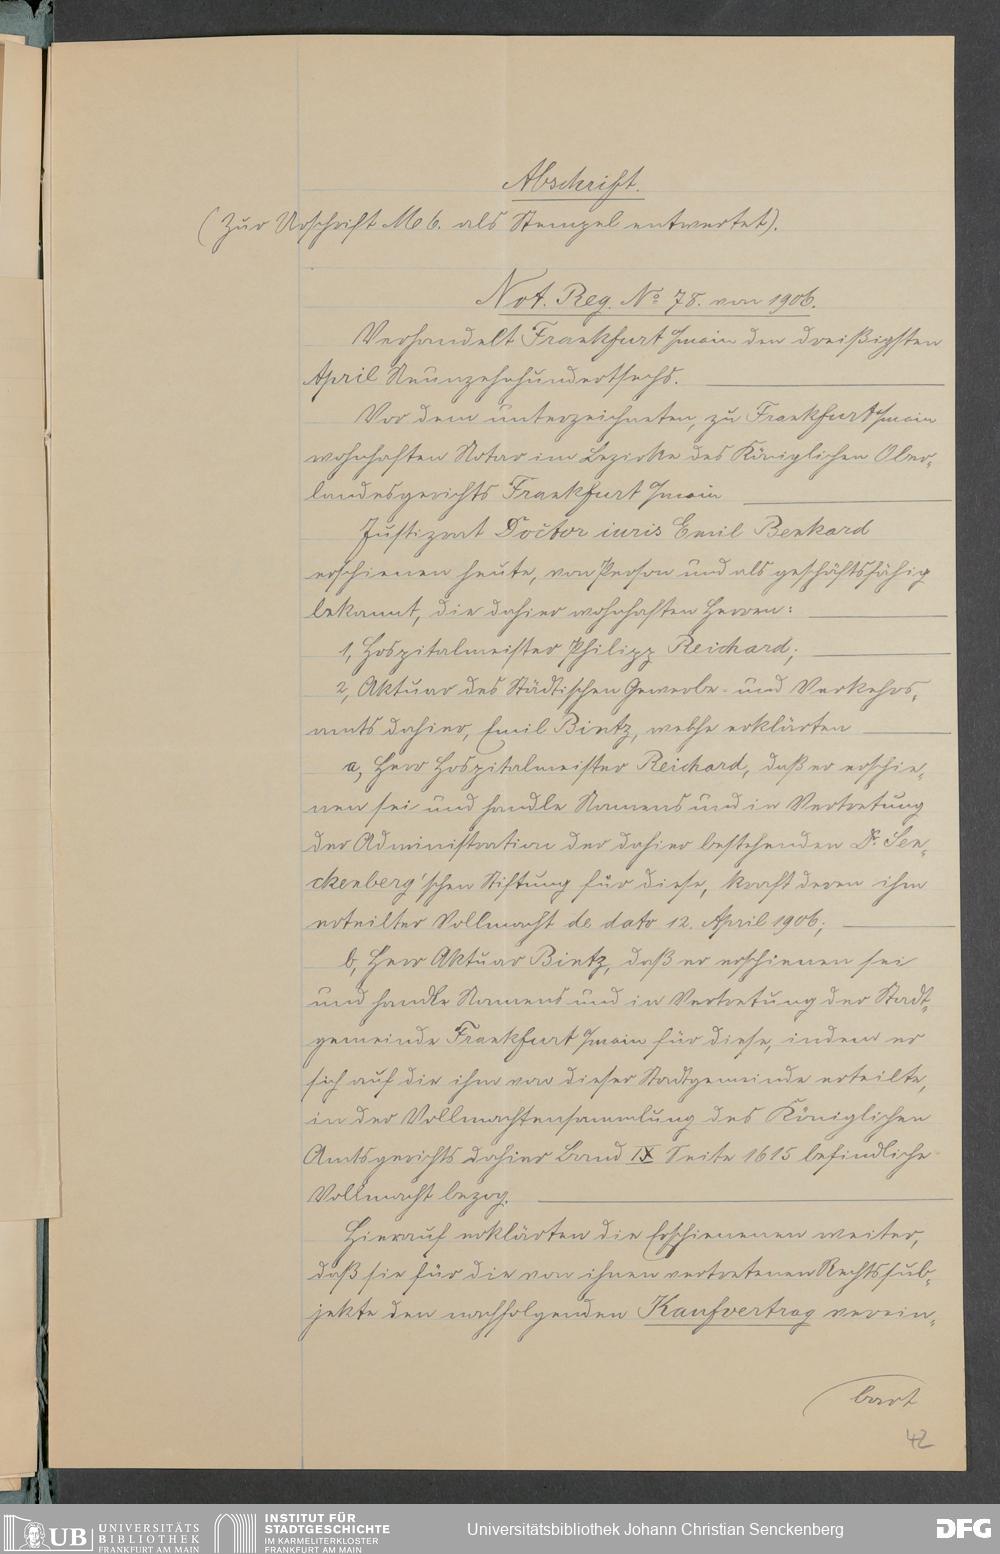 Abschrift.
(Zur Urschrift M 6. als Stempel entwertet).
Not. Reg. No 78. von 1906.
Verhandelt Frankfurt /main den dreißigsten
April Neunzehnhundertsechs.
Vor dem unterzeichneten, zu Frankfurt /main
wohnhaften Notar im Bezirke des Königlichen Ober-
landesgerichts Frankfurt /main
Justizrat Doctor iuris Emil Benkard
erschienen heute, von Person und als geschäftsfähig
bekannt, die dahier wohnhaften Herren:
1, Hospitalmeister Philipp Reichard;
2, Aktuar des Städtischen Gewerbe- und Verkehrs-
amts dahier, Emil Bintz, welche erklärten
a, Herr Hospitalmeister Reichard, daß er erschie-
nen sei und handle Namens und in Vertretung
der Administration der dahier bestehenden Dr. Sen-
ckenberg'schen Stiftung für diese, kraft deren ihm
erteilter Vollmacht de dato 12. April 1906;
b, Herr Aktuar Bintz, daß er erschienen sei
und handle Namens und in Vertretung der Stadt-
gemeinde Frankfurt /main für diese, indem er
sich auf die ihm von dieser Stadtgemeinde erteilte,
in der Vollmachtensammlung des Königlichen
Amtsgerichts dahier Band IX Seite 1615 befindliche
Vollmacht bezog.
Hierauf erklärten die Erschienenen weiter,
daß sie für die von ihnen vertretenen Rechtssub-
jekte den nachfolgenden Kaufvertrag verein-
bart
42
UB UNIVERSITÄTS
BIBLIOTHEK
FRANKFURT AM MAIN
INSTITUT FÜR
STADTGESCHICHTE
IM KARMELITERKLOSTER
FRANKFURT AM MAIN
Universitätsbibliothek Johann Christian Senckenberg
DFG